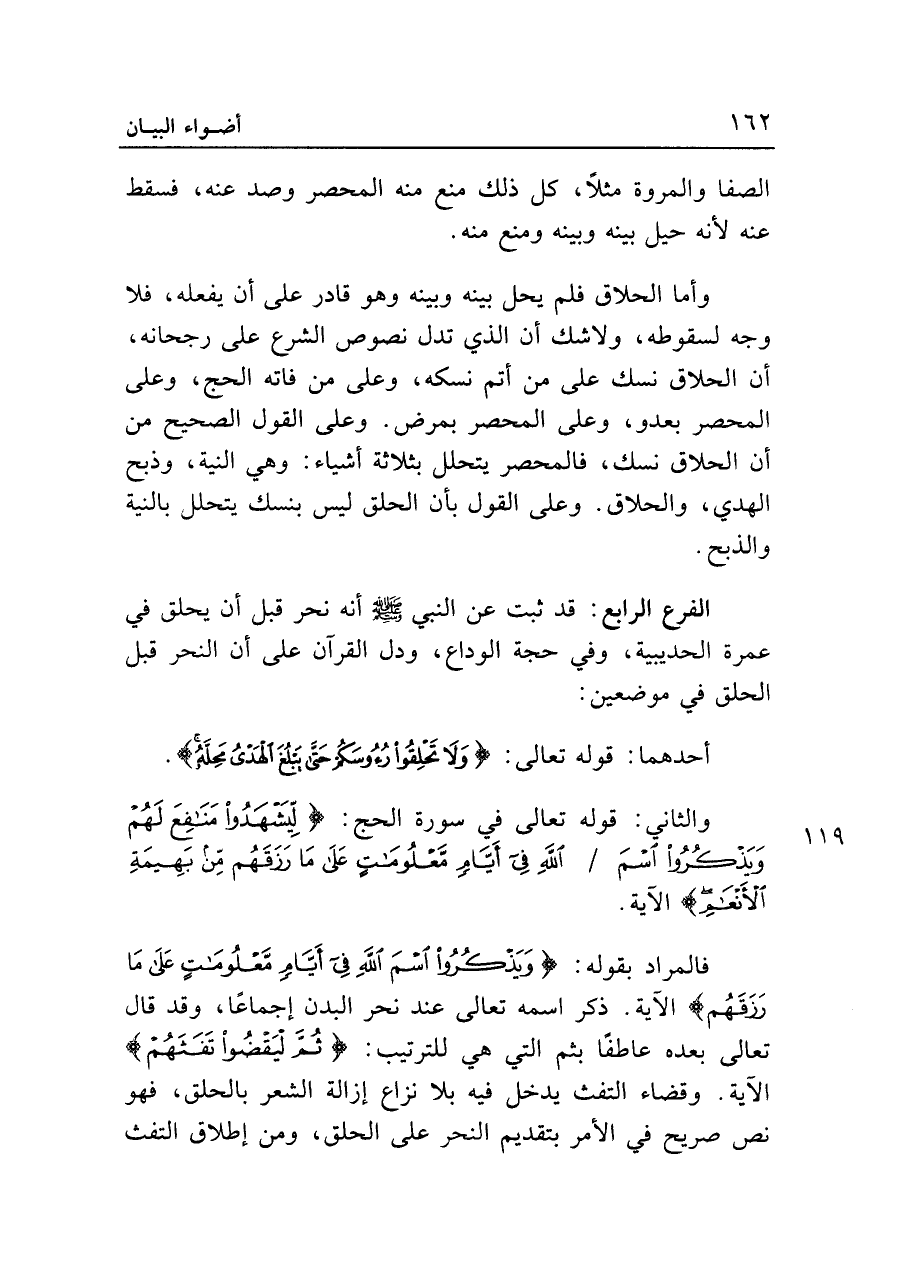 ١٦٢ أضـواء البيـان
الصفا والمروة مثلاً، كل ذلك منع منه المحصر وصد عنه، فسقط
عنه لأنه حيل بينه وبينه ومنع منه.
وأما الحلاق فلم يحل بينه وبينه وهو قادر على أن يفعله، فلا
وجه لسقوطه، ولاشك أن الذي تدل نصوص الشرع على رجحانه،
أن الحلاق نسك على من أتم نسكه، وعلى من فاته الحج، وعلى
المحصر بعدو، وعلى المحصر بمرض. وعلى القول الصحيح من
أن الحلاق نسك، فالمحصر يتحلل بثلاثة أشياء: وهي النية، وذبح
الهدي، والحلاق. وعلى القول بأن الحلق ليس بنسك يتحلل بالنية
والذبح.
الفرع الرابع: قد ثبت عن النبي ﷺ أنه نحر قبل أن يحلق في
عمرة الحديبية، وفي حجة الوداع، ودل القرآن على أن النحر قبل
الحلق في موضعين:
أحدهما: قوله تعالى: ﴿ وَلَا تَحْلِقُوا۟ رُءُوسَكُمْ حَتَّىٰ يَبْلُغَ ٱلْهَدْىُ مَحِلَّهُۥ ﴾.
والثاني: قوله تعالى في سورة الحج: ﴿ لِّيَشْهَدُوا۟ مَنَـٰفِعَ لَهُمْ
وَيَذْكُرُوا۟ ٱسْمَ / ٱللَّهِ فِىٓ أَيَّامٍ مَّعْلُومَـٰتٍ عَلَىٰ مَا رَزَقَهُم مِّنۢ بَهِيمَةِ
ٱلْأَنْعَـٰمِۖ ﴾ الآية.
١١٩
فالمراد بقوله: ﴿ وَيَذْكُرُوا۟ ٱسْمَ ٱللَّهِ فِىٓ أَيَّامٍ مَّعْلُومَـٰتٍ عَلَىٰ مَا
رَزَقَهُم ﴾ الآية. ذكر اسمه تعالى عند نحر البدن إجماعًا، وقد قال
تعالى بعده عاطفًا بثم التي هي للترتيب: ﴿ ثُمَّ لْيَقْضُوا۟ تَفَثَهُمْ ﴾
الآية. وقضاء التفث يدخل فيه بلا نزاع إزالة الشعر بالحلق، فهو
نص صريح في الأمر بتقديم النحر على الحلق، ومن إطلاق التفث